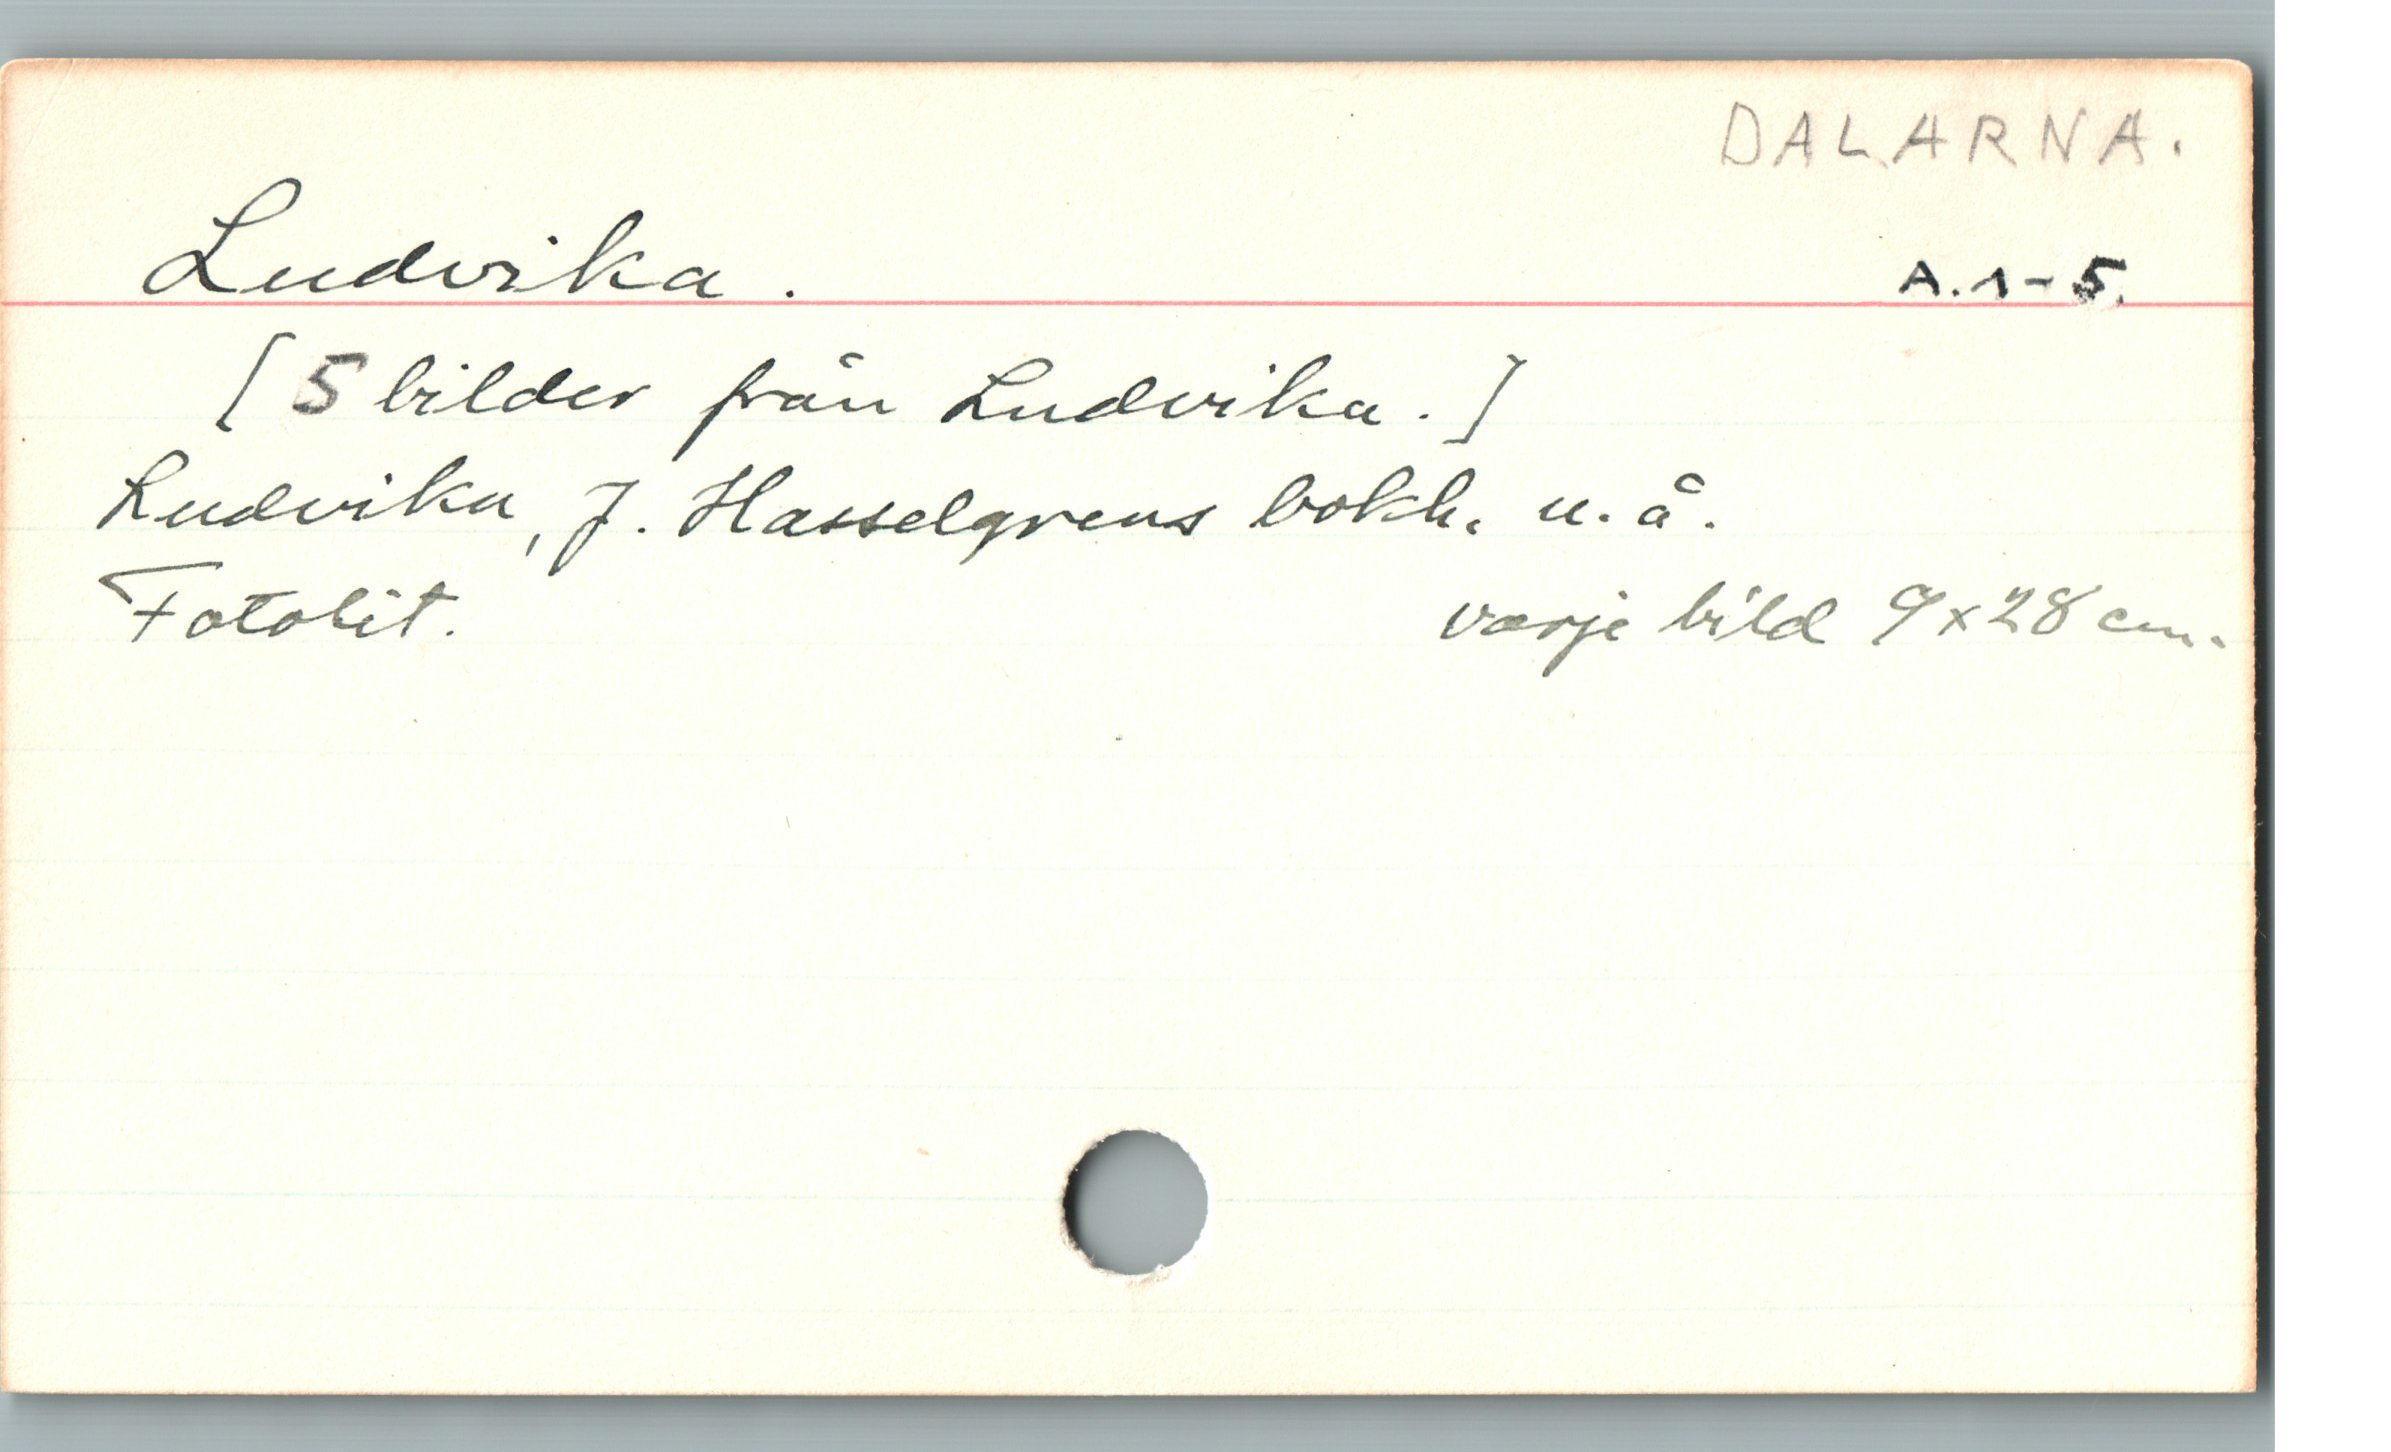 DALARNA.
Ludvika. A.1-5.
[5 bilder från Ludvika.]
Ludvika, J. Hasselgrens bokh. u.å.
Fotolit. varje bild 9x28 cm.